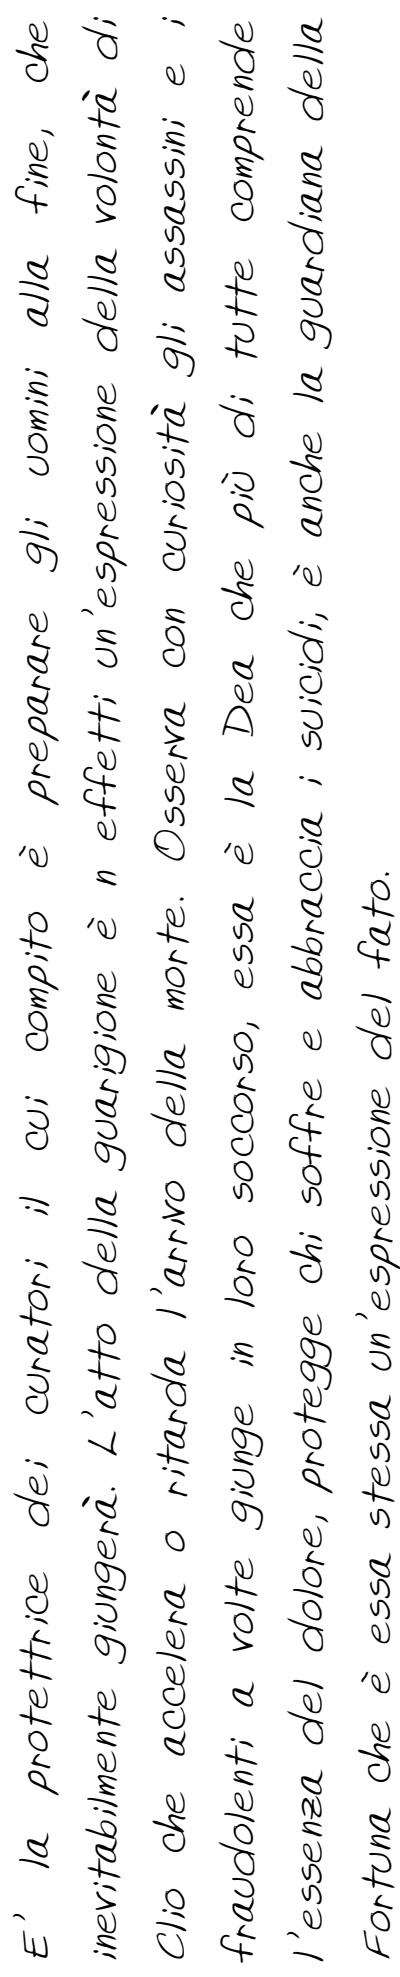 E' la protettrice dei curatori il cui compito è preparare gli uomini alla fine, che
inevitabilmente giungerà. L'atto della guarigione è n effetti un'espressione della volontà di
Clio che accelera o ritarda l'arrivo della morte. Osserva con curiosità gli assassini e i
fraudolenti a volte giunge in loro soccorso, essa è la Dea che più di tutte comprende
l'essenza del dolore, protegge chi soffre e abbraccia i suicidi, è anche la guardiana della
Fortuna che è essa stessa un'espressione del fato.